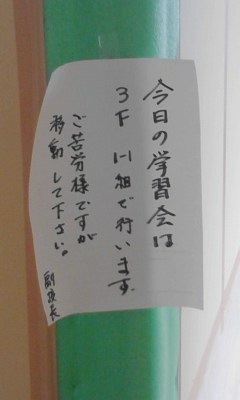 今日の学習会は
3F 川組で行います.
ご苦労様ですが
移動して下さい。
副園長